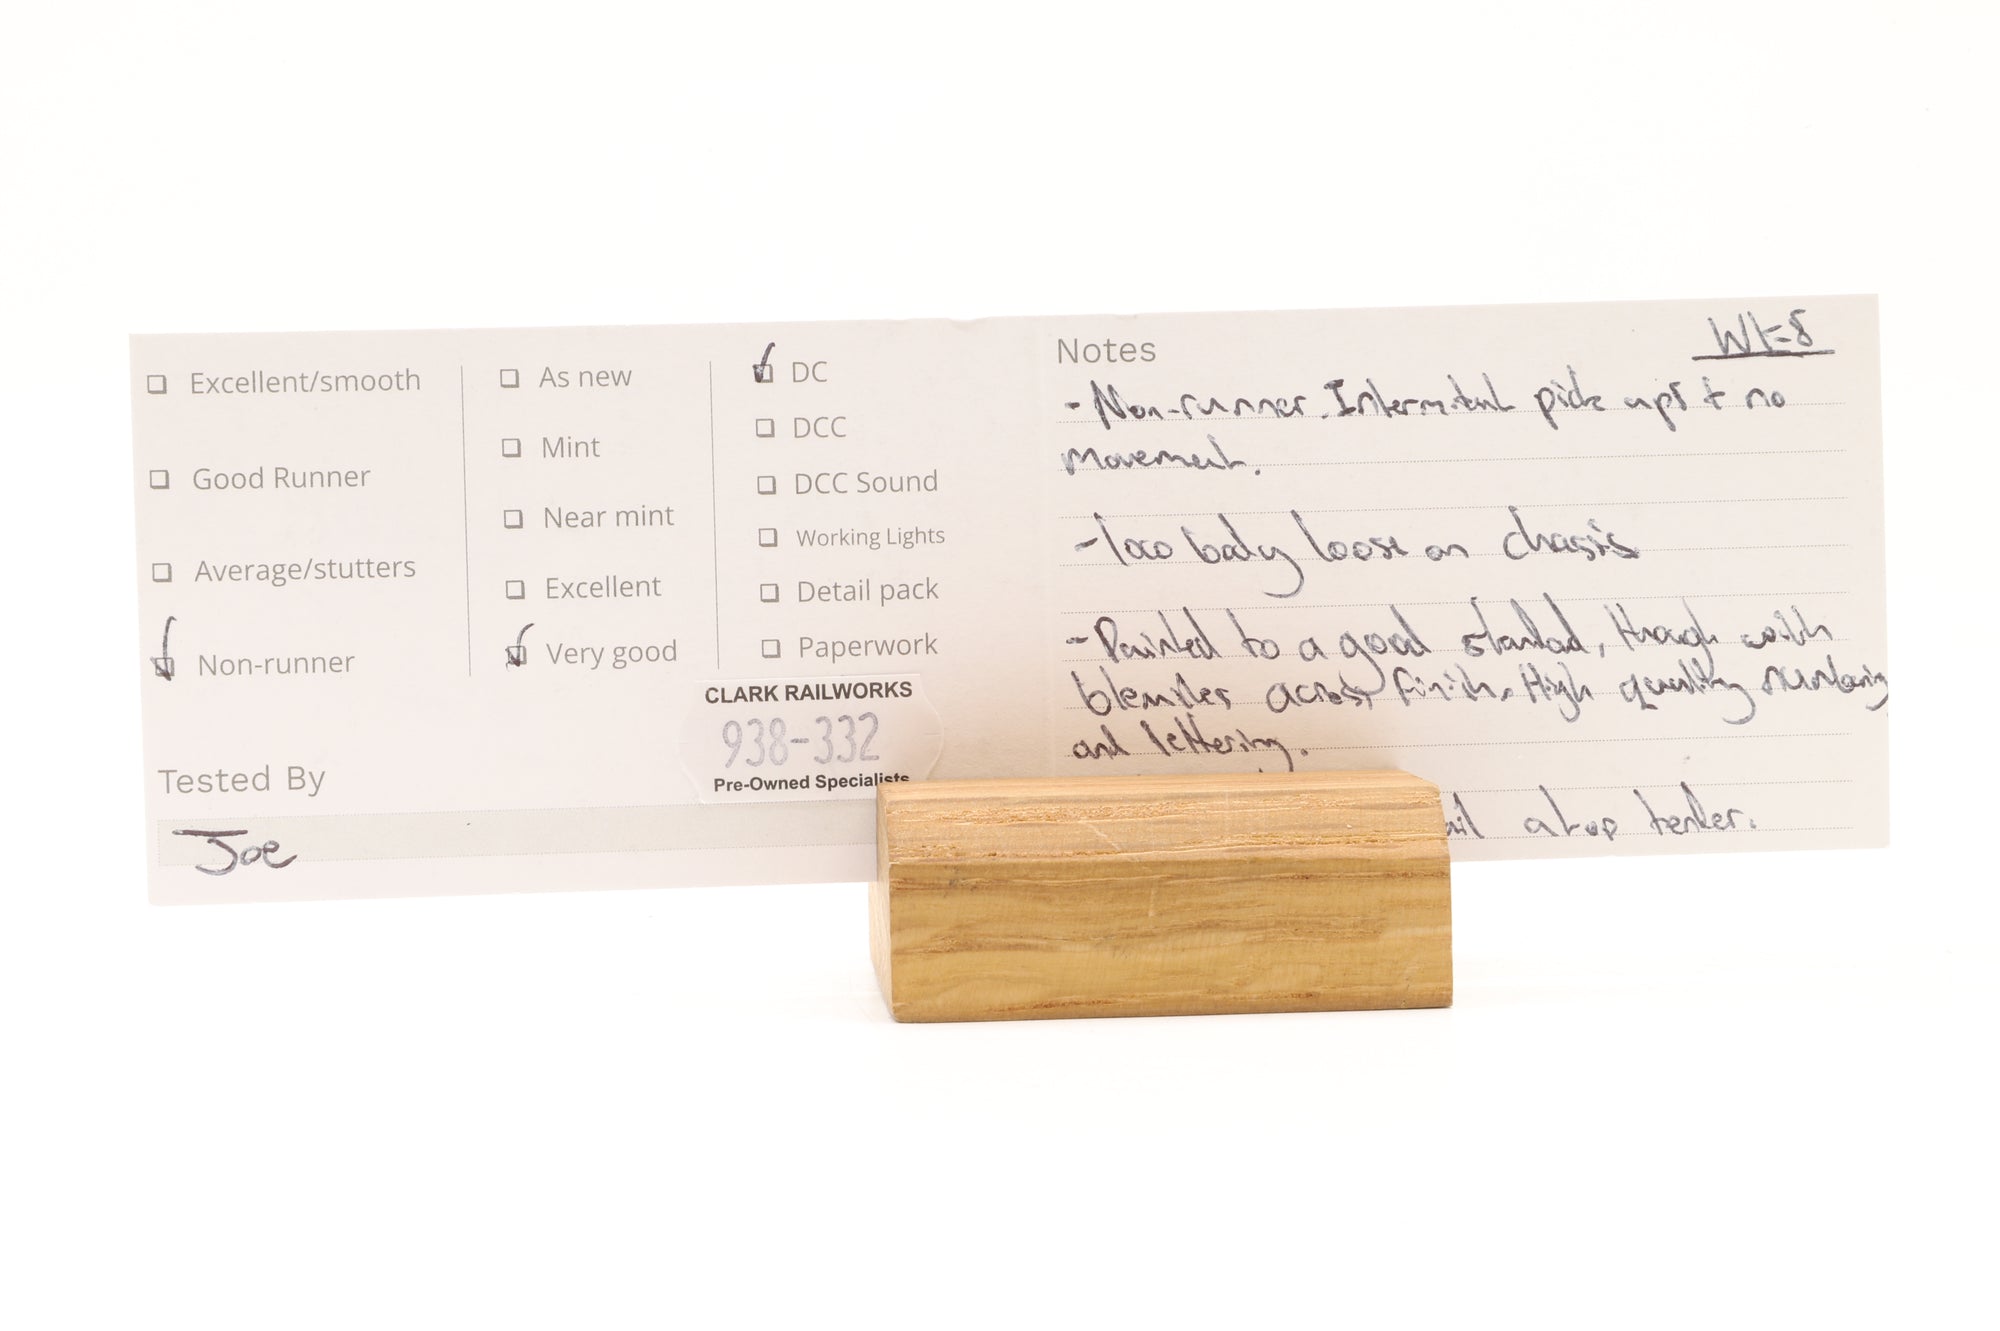 Excellent/smooth
Good Runner
Average/stutters
Non-runner
As new
Mint
Near mint
Excellent
Very good
DC
DCC
DCC Sound
Working Lights
Detail pack
Paperwork
CLARK RAILWORKS
938-332
Pre-Owned Specialists
Tested By
Joe
Notes
- Non-runner. Intermitent pick ups + no
movement.
- loco body loose on chassis
- Painted to a good standard, though with
blemishes across finish. High quality numbering
and lettering.
atop tender.